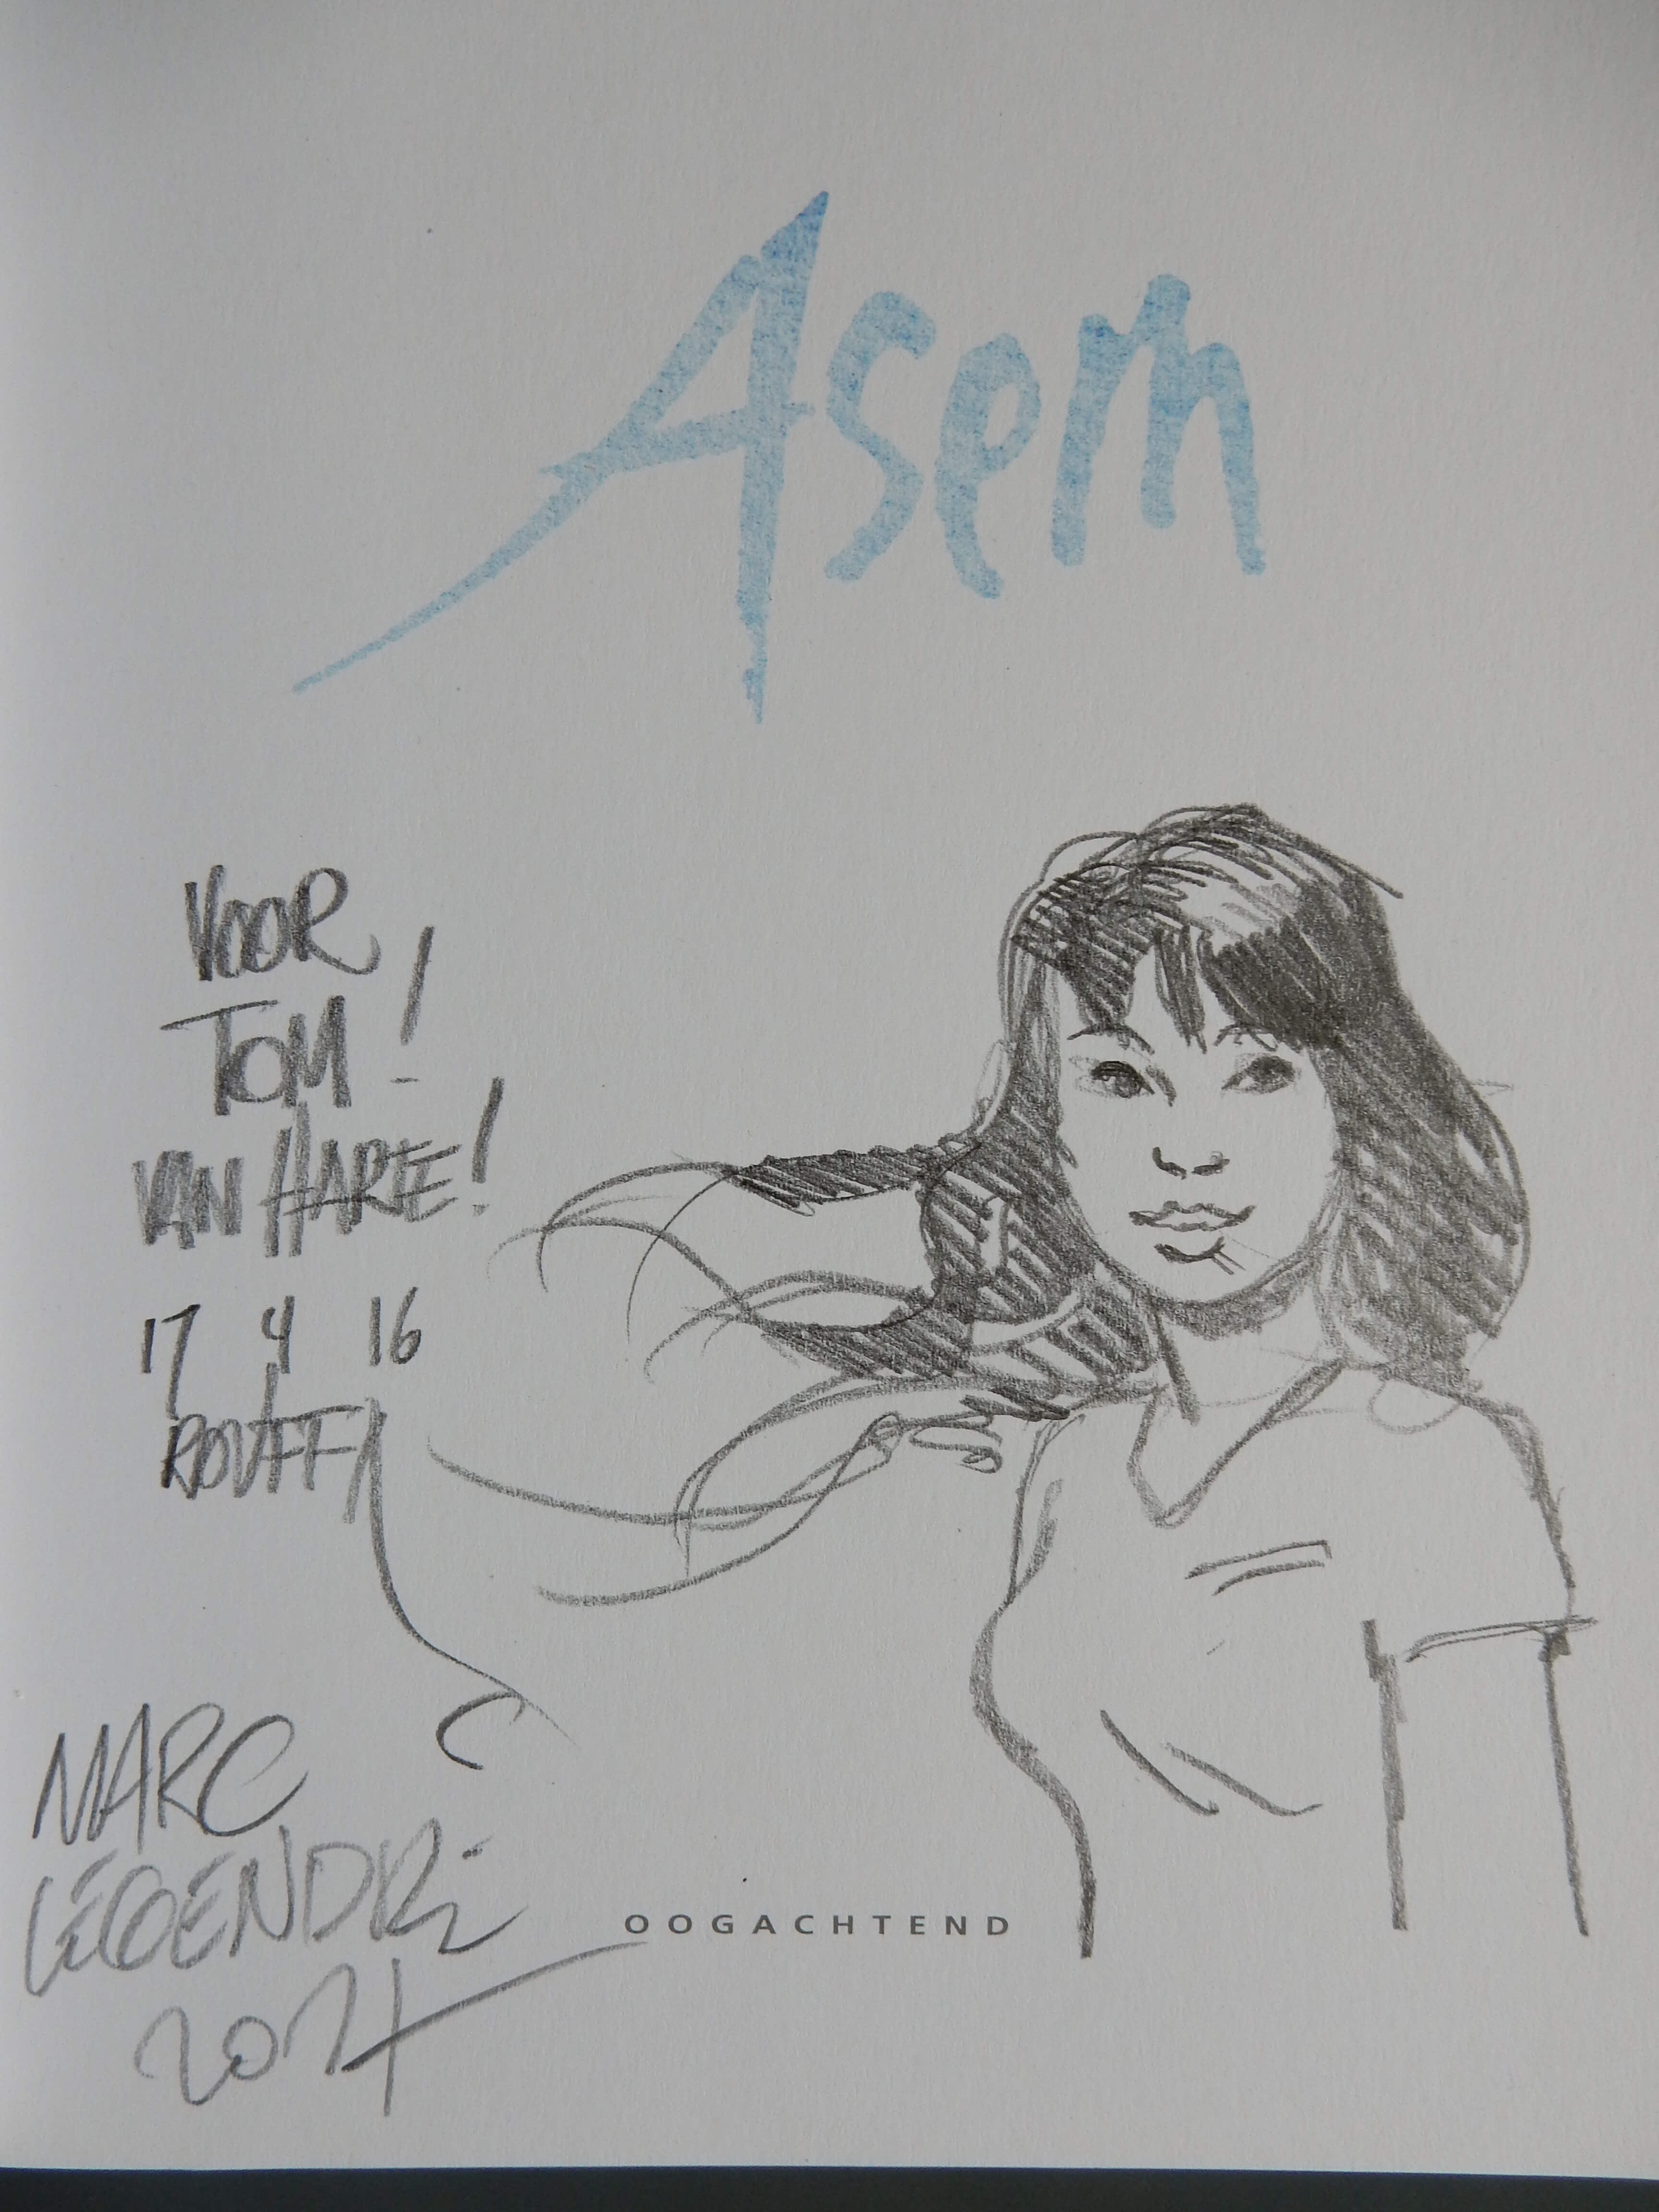 Asem
VOOR
TOM!
VAN HARIE!
17 4 16
ROUFFA
MARC
LEGENDRE
OOGACHTEND